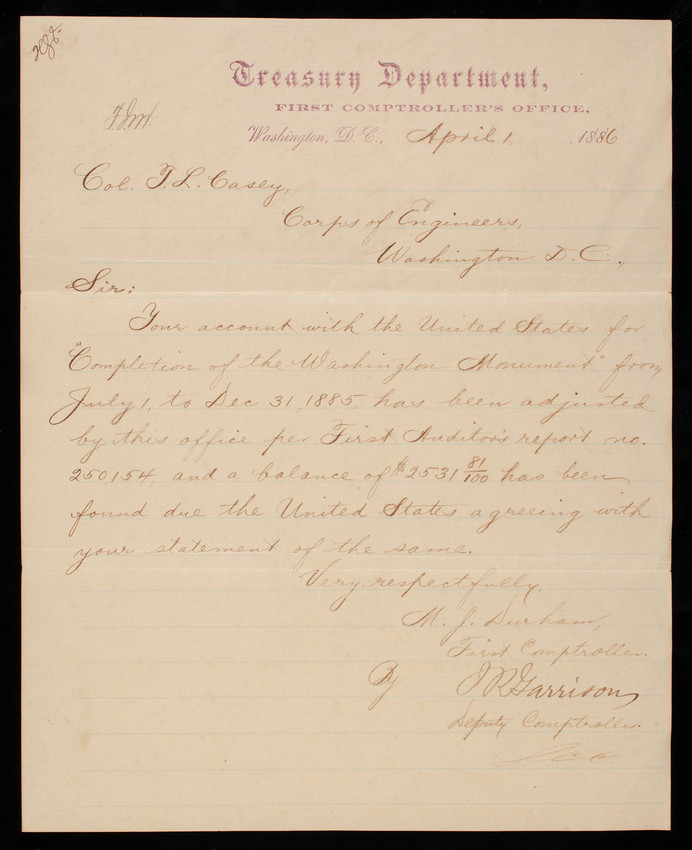 Treasury Department,
FIRST COMPTROLLER'S OFFICE.
Washington, D. C., April 1, 1886
Col. T. L. Casey,
Corps of Engineers,
Washington D. C.,
Sir:
Your account with the United States for
"Completion of the Washington Monument" from
July 1, to Dec 31, 1885 has been adjusted
by this office per First Auditor's report no.
250154, and a balance of $2531 81/100 has been
found due the United States agreeing with
your statement of the same.
Very respectfully,
M. J. Durham,
First Comptroller.
By J R Garrison
Deputy Comptroller